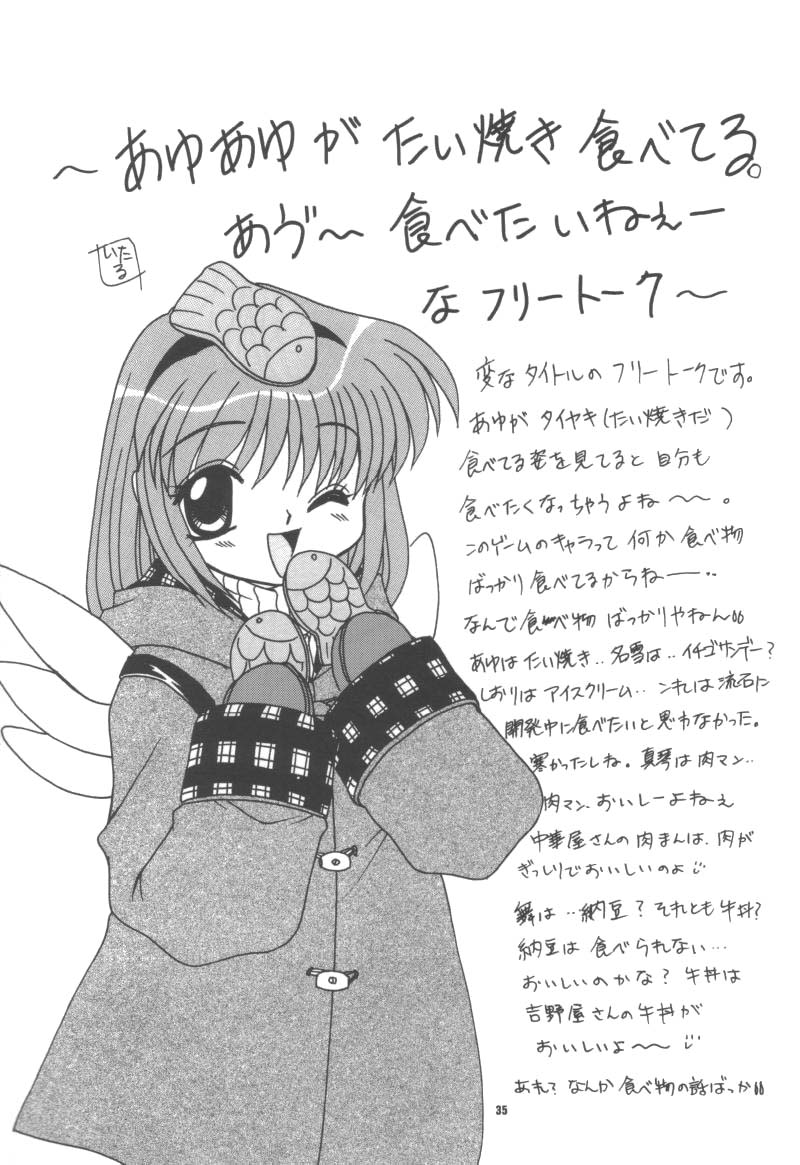 ～あゆあゆが たい焼き 食べてる。
あヴ～ 食べたいねぇー
な フリートーク～
いたる
変な タイトルの フリートークです。
あゆが タイヤキ(たい焼きだ)
食べてる姿を見てると 自分も
食べたくなっちゃうよね～～。
このゲームのキャラって 何か 食べ物
ばっかり 食べてるからね――‥
なんで食べ物 ばっかりやねん
あゆは たい焼き‥名雪は‥イチゴサンデー?
しおりは アイスクリーム‥ これは流石に
開発中に食べたいと 思わなかった。
寒かったしね。真琴は 肉マン‥
肉マン、おいしーよねぇ
中華屋さんの 肉まんは、肉が
ぎっしりでおいしいのよ
舞は‥納豆? それとも牛丼?
納豆は 食べられない…
おいしいのかな? 牛丼は
吉野屋さんの牛丼が
おいしいよ～～
あれ? なんか 食べ物の話ばっか
35